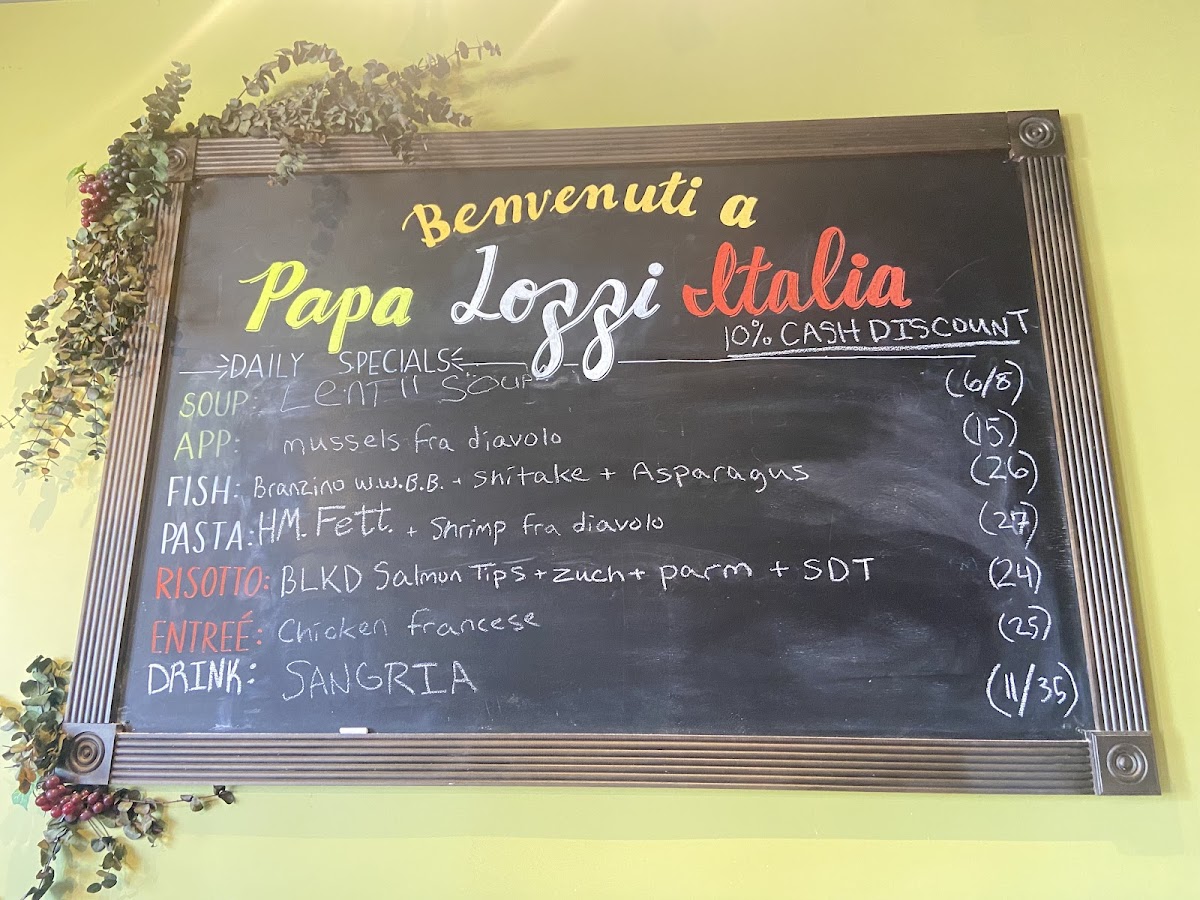 Benvenuti a
Papa Lozzi Italia
10% CASH DISCOUNT
DAILY SPECIALS
SOUP: Lentil Soup (6/8)
APP: mussels fra diavolo (15)
FISH: Branzino w.w.B.B. + shitake + Asparagus (26)
PASTA: HM. Fett. + Shrimp fra diavolo (27)
RISOTTO: BLKD Salmon Tips + zuch + parm + SDT (24)
ENTREÉ: Chicken francese (25)
DRINK: SANGRIA (11/35)